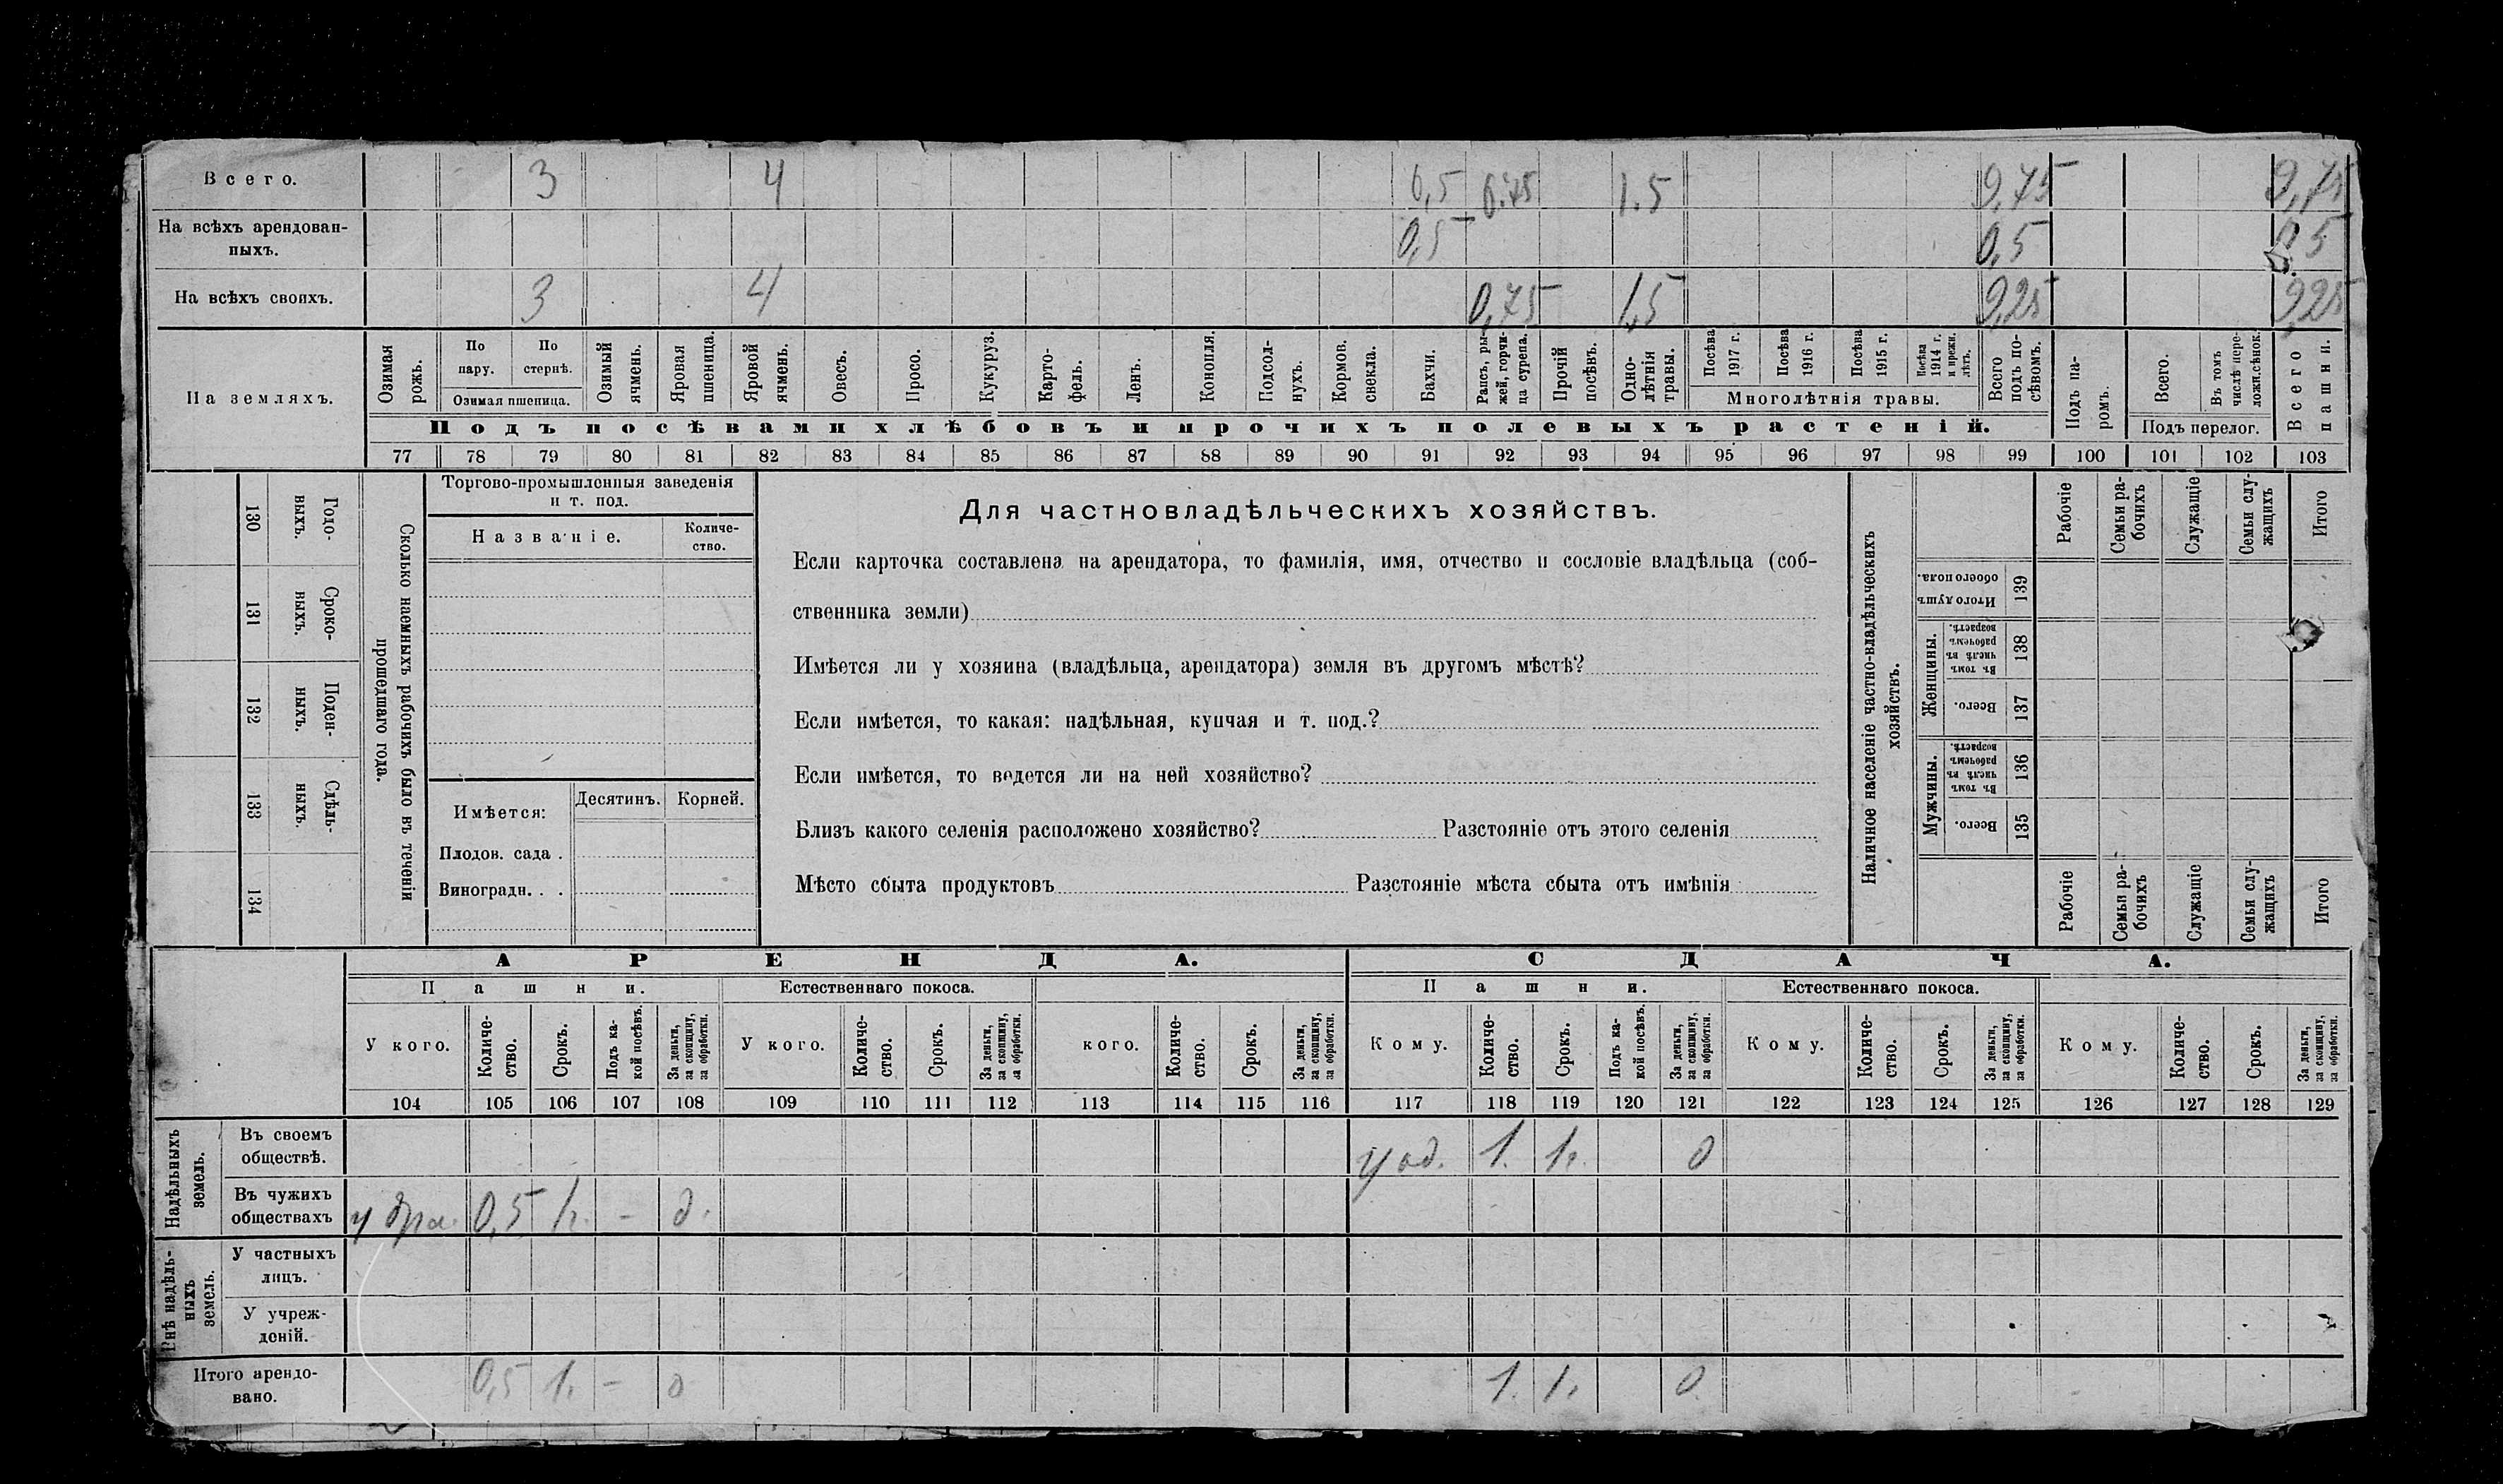 Всего. 3 4 0,5 0.75 1.5 9,75 9,75
На всѣхъ арендован-
ныхъ. 0,5 0,5 0,5
На всѣхъ своихъ. 3 4 0,75 1,5 9,25 9,25
На земляхъ.
Озимая рожь.
По пару.
По стернѣ.
Озимая пшеница.
Озимый ячмень.
Яровая пшеница.
Яровой ячмень.
Овесъ.
Просо.
Кукуруз.
Карто-
фель.
Ленъ.
Конопля.
Подсол-
нухъ.
Кормов. свекла.
Бахчи.
Рапсъ, ры-
жей, горчи-
ца сурепа.
Прочій посѣвъ.
Одно-
лѣтнія травы.
Посѣва 1917 г.
Посѣва 1916 г.
Посѣва 1915 г.
Посѣва 1914 г. и прежн. лѣтъ.
Многолѣтнія травы.
Всего подъ по-
сѣвомъ.
Подъ па-
ромъ.
Всего.
Въ томъ числѣ пере-
ложн. сѣнок.
Подъ перелог.
Всего пашни.
Подъ посѣвами хлѣбовъ и прочихъ полевыхъ растеній.
77 78 79 80 81 82 83 84 85 86 87 88 89 90 91 92 93 94 95 96 97 98 99 100 101 102 103
130 Годо-
выхъ.
131 Сроко-
выхъ.
132 Поден-
ныхъ.
133 Сдѣль-
ныхъ.
134
Сколько наемныхъ рабочихъ было въ теченіи
прошедшаго года.
Торгово-промышленныя заведенія
и т. под.
Названіе.
Количе-
ство.
Имѣется: Десятинъ. Корней.
Плодов. сада .
Виноградн. . .
Для частновладѣльческихъ хозяйствъ.
Если карточка составлена на арендатора, то фамилія, имя, отчество и сословіе владѣльца (соб-
ственника земли)
Имѣется ли у хозяина (владѣльца, арендатора) земля въ другомъ мѣстѣ?
Если имѣется, то какая: надѣльная, купчая и т. под.?
Если имѣется, то ведется ли на ней хозяйство?
Близъ какого селенія расположено хозяйство? Разстояніе отъ этого селенія
Мѣсто сбыта продуктовъ Разстояніе мѣста сбыта отъ имѣнія
Наличное населеніе частно-владѣльческихъ
хозяйствъ.
Рабочіе
Семьи ра-
бочихъ
Служащіе
Семьи слу-
жащихъ
Итого
Итого душъ обоего пола. 139
Женщины.
Въ томъ числѣ въ рабочемъ возрастѣ. 138
Всего. 137
Мужчины.
Въ томъ числѣ въ рабочемъ возрастѣ. 136
Всего. 135
Рабочіе
Семьи ра-
бочихъ
Служащіе
Семьи слу-
жащихъ
Итого
АРЕНДА. СДАЧА.
Пашни. Естественнаго покоса. Пашни. Естественнаго покоса.
У кого.
Количе-
ство.
Срокъ.
Подъ ка-
кой посѣвъ.
За деньги, за скопщину, за обработки.
У кого.
Количе-
ство.
Срокъ.
За деньги, за скопщину, за обработки.
кого.
Количе-
ство.
Срокъ.
За деньги, за скопщину, за обработки.
Кому.
Количе-
ство.
Срокъ.
Подъ ка-
кой посѣвъ.
За деньги, за скопщину, за обработки.
Кому.
Количе-
ство.
Срокъ.
За деньги, за скопщину, за обработки.
Кому.
Количе-
ство.
Срокъ.
За деньги, за скопщину, за обработки.
104 105 106 107 108 109 110 111 112 113 114 115 116 117 118 119 120 121 122 123 124 125 126 127 128 129
Надѣльныхъ земель.
Въ своемъ
обществѣ. 1. 1г. д
Въ чужихъ
обществахъ 0,5 1г. - д.
Внѣ надѣль-
ныхъ земель.
У частныхъ
лицъ.
У учреж-
деній.
Итого арендо-
вано. 0,5 1г. - д 1. 1г. д.